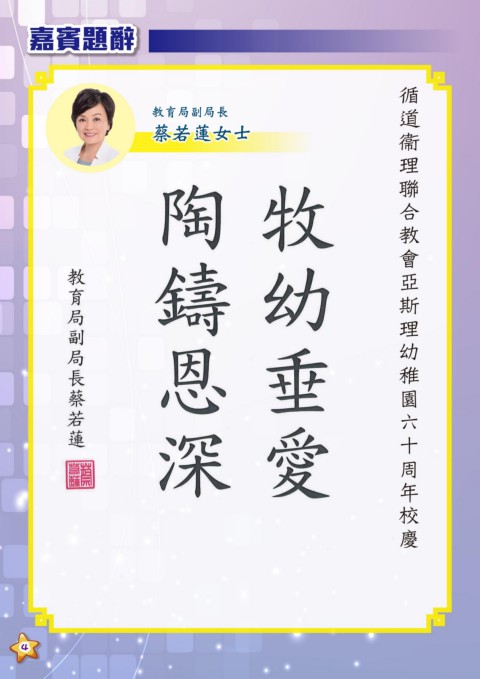 嘉賓題辭
教育局副局長
蔡若蓮女士
循道衞理聯合教會亞斯理幼稚園六十周年校慶
牧幼垂愛
陶鑄恩深
教育局副局長蔡若蓮
4